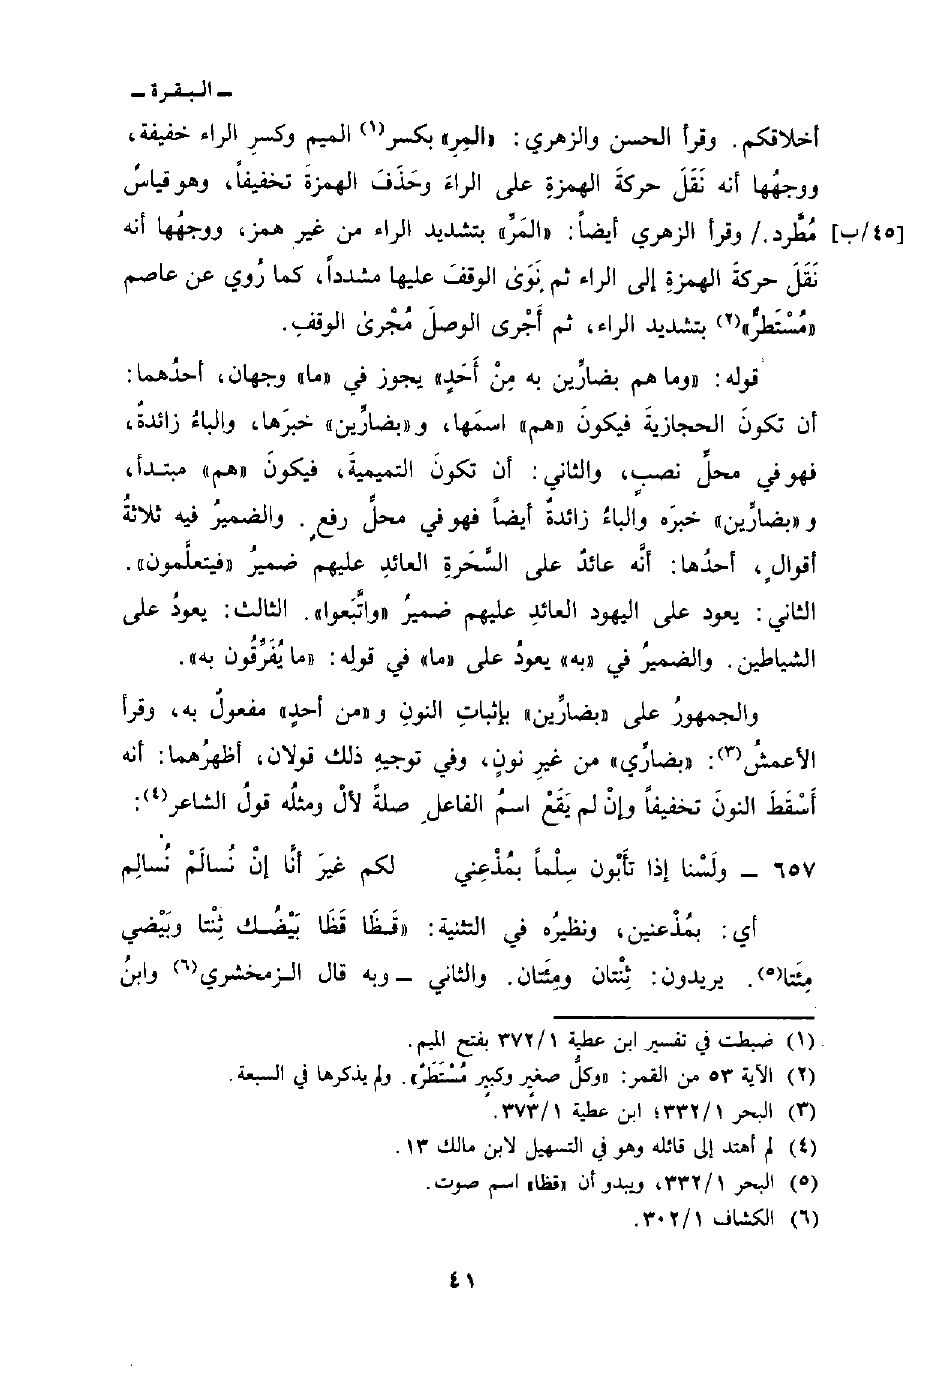 ـ البقرة ـ
أخلاقكم. وقرأ الحسن والزهري: «المِرِ» بكسر(١) الميم وكسرِ الراء خفيفة،
ووجهُها أنه نَقَلَ حركةَ الهمزةِ على الراءَ وحَذَفَ الهمزةَ تخفيفاً، وهو قياسٌ
[٤٥/ب] مُطَّرد./ وقرأ الزهري أيضاً: «المَرِّ» بتشديد الراء من غير همز، ووجهُها أنه
نَقَلَ حركةَ الهمزةِ إلى الراء ثم نَوَىٰ الوقفَ عليها مشدداً، كما رُوي عن عاصم
«مُسْتَطَرٌّ»(٢) بتشديد الراء، ثم أَجْرى الوصلَ مُجْرىٰ الوقفِ.
قوله: «وما هم بضارِّين به مِنْ أَحَدٍ» يجوز في «ما» وجهان، أحدُهما:
أن تكونَ الحجازيةَ فيكونَ «هم» اسمَها، و«بضارِّين» خبرَها، والباءُ زائدةٌ،
فهو في محلِّ نصبٍ، والثاني: أن تكونَ التميميةَ، فيكونَ «هم» مبتدأً،
و«بضارِّين» خبرَه والباءُ زائدةٌ أيضاً فهو في محلِّ رفعٍ. والضميرُ فيه ثلاثةُ
أقوالٍ، أحدُها: أنَّه عائدٌ على السَّحَرةِ العائدِ عليهم ضميرُ «فيتعلَّمون».
الثاني: يعود على اليهود العائدِ عليهم ضميرُ «واتَّبَعوا». الثالث: يعودُ على
الشياطين. والضميرُ في «به» يعودُ على «ما» في قوله: «ما يُفَرِّقُون به».
والجمهورُ على «بضارِّين» بإثباتِ النونِ و«من أحدٍ» مفعولٌ به، وقرأ
الأعمشُ(٣): «بضارِّي» من غيرِ نونٍ، وفي توجيهِ ذلك قولان، أظهرُهما: أنه
أَسْقَطَ النونَ تخفيفاً وإنْ لم يَقَعْ اسمُ الفاعلِ صلةً لألْ ومثلُه قولُ الشاعر(٤):
٦٥٧ ـ ولَسْنا إذا تأبَوْن سِلْماً بمُذْعِني لكم غيرَ أنَّا إنْ نُسالَمْ نُسالِمِ
أي: بمُذْعنين، ونظيرُه في التثنية: «قَظَا قَظَا بَيْضُك ثِنْتا وبَيْضي
مِئَتا(٥). يريدون: ثِنْتان ومِئَتان. والثاني ـ وبه قال الزمخشري(٦) وابنُ
(١) ضبطت في تفسير ابن عطية ٣٧٢/١ بفتح الميم.
(٢) الآية ٥٣ من القمر: «وكلُّ صغيرٍ وكبيرٍ مُسْتَطَرٌ». ولم يذكرها في السبعة.
(٣) البحر ٣٣٢/١؛ ابن عطية ٣٧٣/١.
(٤) لم أهتد إلى قائله وهو في التسهيل لابن مالك ١٣.
(٥) البحر ٣٣٢/١، ويبدو أن «قظا» اسم صوت.
(٦) الكشاف ٣٠٢/١.
٤١